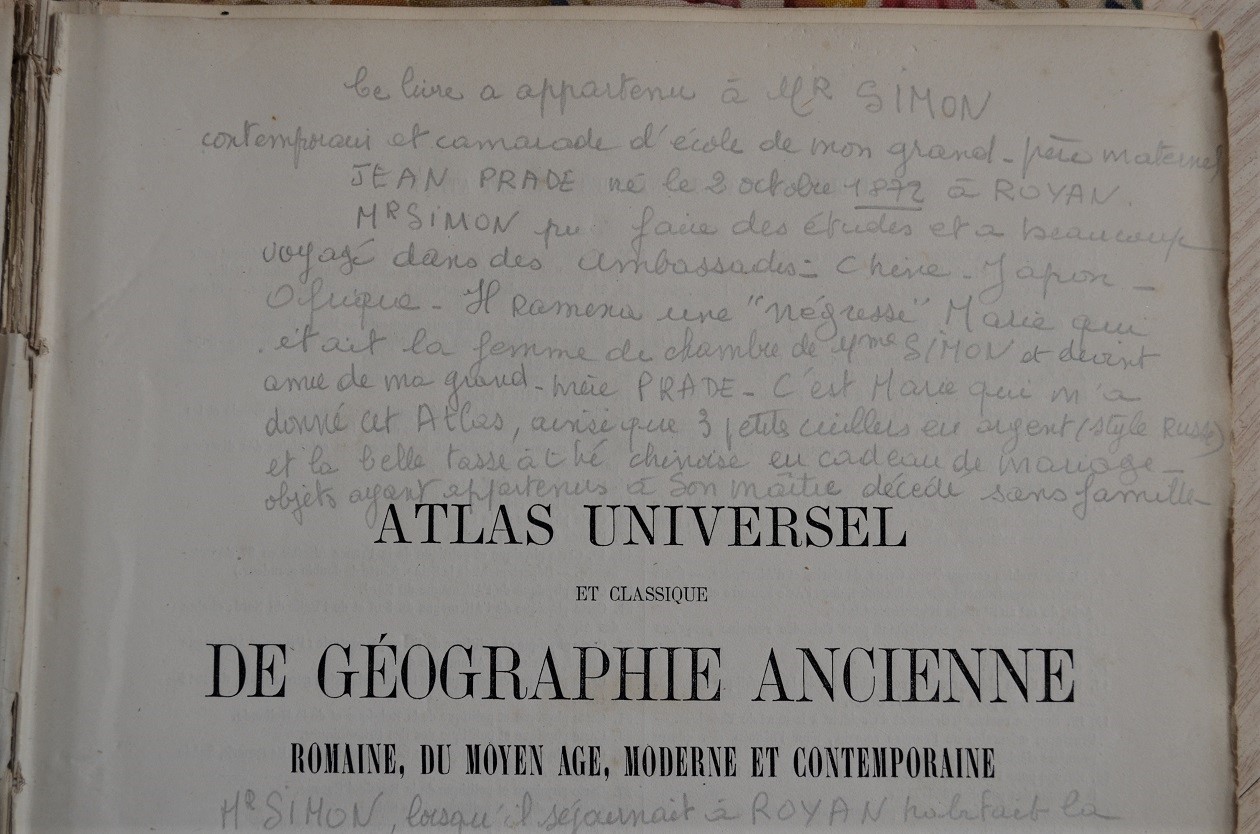 Ce livre a appartenu à MR SIMON
contemporain et camarade d'école de mon grand-père maternel
JEAN PRADE né le 2 octobre 1872 à ROYAN.
MR SIMON pu faire des études et a beaucoup
voyagé dans des ambassades - Chine - Japon -
Afrique - Il ramena une "négresse" Marie qui
était la femme de chambre de Mme SIMON et devint
amie de ma grand-mère PRADE - C'est Marie qui m'a
donné cet Atlas, ainsi que 3 petits cuillers en argent (style Russe)
et la belle tasse à thé chinoise en cadeau de mariage -
objets ayant appartenus à son maître décédé sans famille -
ATLAS UNIVERSEL
ET CLASSIQUE
DE GÉOGRAPHIE ANCIENNE
ROMAINE, DU MOYEN AGE, MODERNE ET CONTEMPORAINE
MR SIMON, lorsqu'il séjournait à ROYAN habitait la